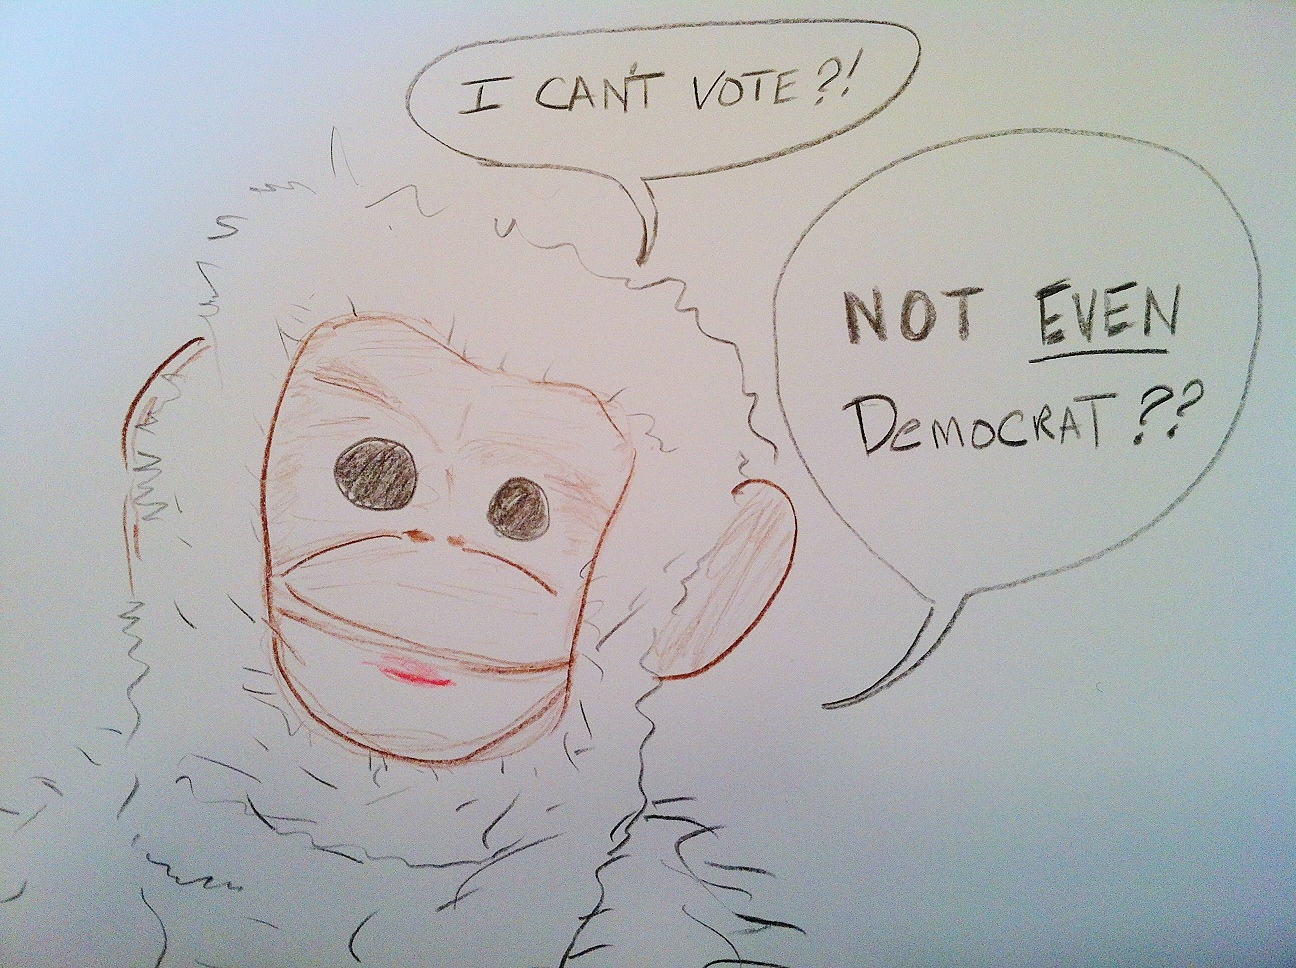 I CAN'T VOTE?!
NOT EVEN
DEMOCRAT??